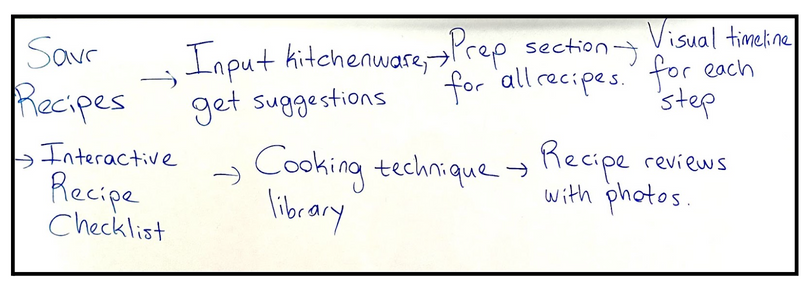 Savr
Recipes
→ Input kitchenware,
get suggestions
→ Prep section
for all recipes.
→ Visual timeline
for each
step
→ Interactive
Recipe
Checklist
→ Cooking technique
library
→ Recipe reviews
with photos.